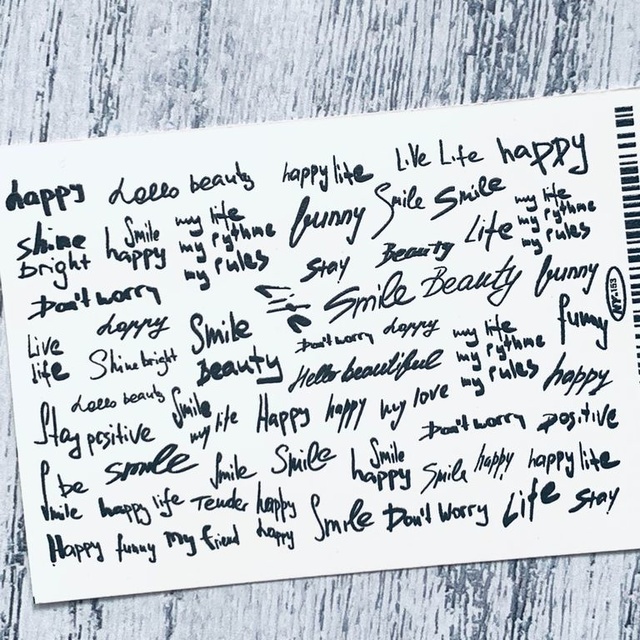 happy Hello beauty happy life Live Life happy
shine bright
Smile happy
my life
my rythme
my rules
funny Smile Smile
stay Beauty Life
my life
my rythme
my rules
Don't worry
Smile Beauty funny
Live life
happy Smile
Don't worry happy
funny
Shine bright Beauty Hello beautiful
my life
my rythme
my rules
happy
Hello beauty Smile
my life
Happy happy my love
Stay positive
Don't worry positive
be smile
smile Smile
Smile happy
Smile happy happy life
Smile happy life Tender happy Smile Don't Worry Life stay
Happy funny My friend happy